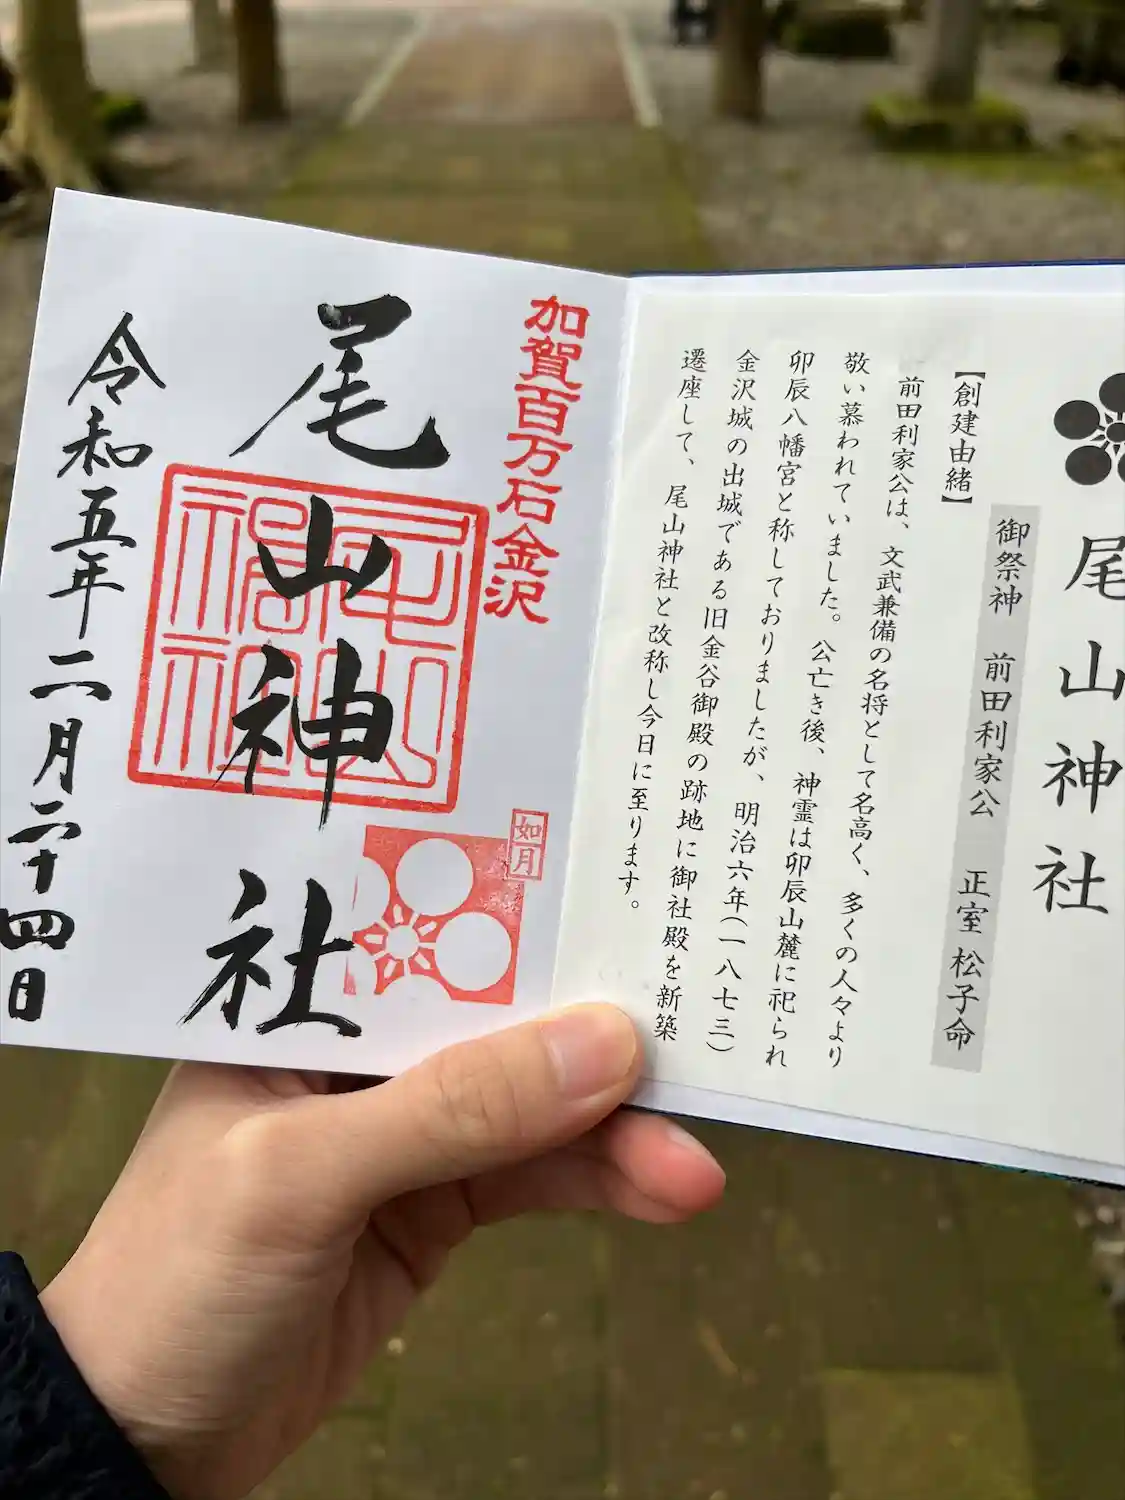 尾山神社
御祭神 前田利家公 正室 松子命
【創建由緒】
前田利家公は、文武兼備の名将として名高く、多くの人々より
敬い慕われていました。公亡き後、神霊は卯辰山麓に祀られ
卯辰八幡宮と称しておりましたが、明治六年(一八七三)
金沢城の出城である旧金谷御殿の跡地に御社殿を新築
遷座して、尾山神社と改称し今日に至ります。
加賀百万石金沢
如月
尾山神社
尾山神社
令和五年二月二十四日